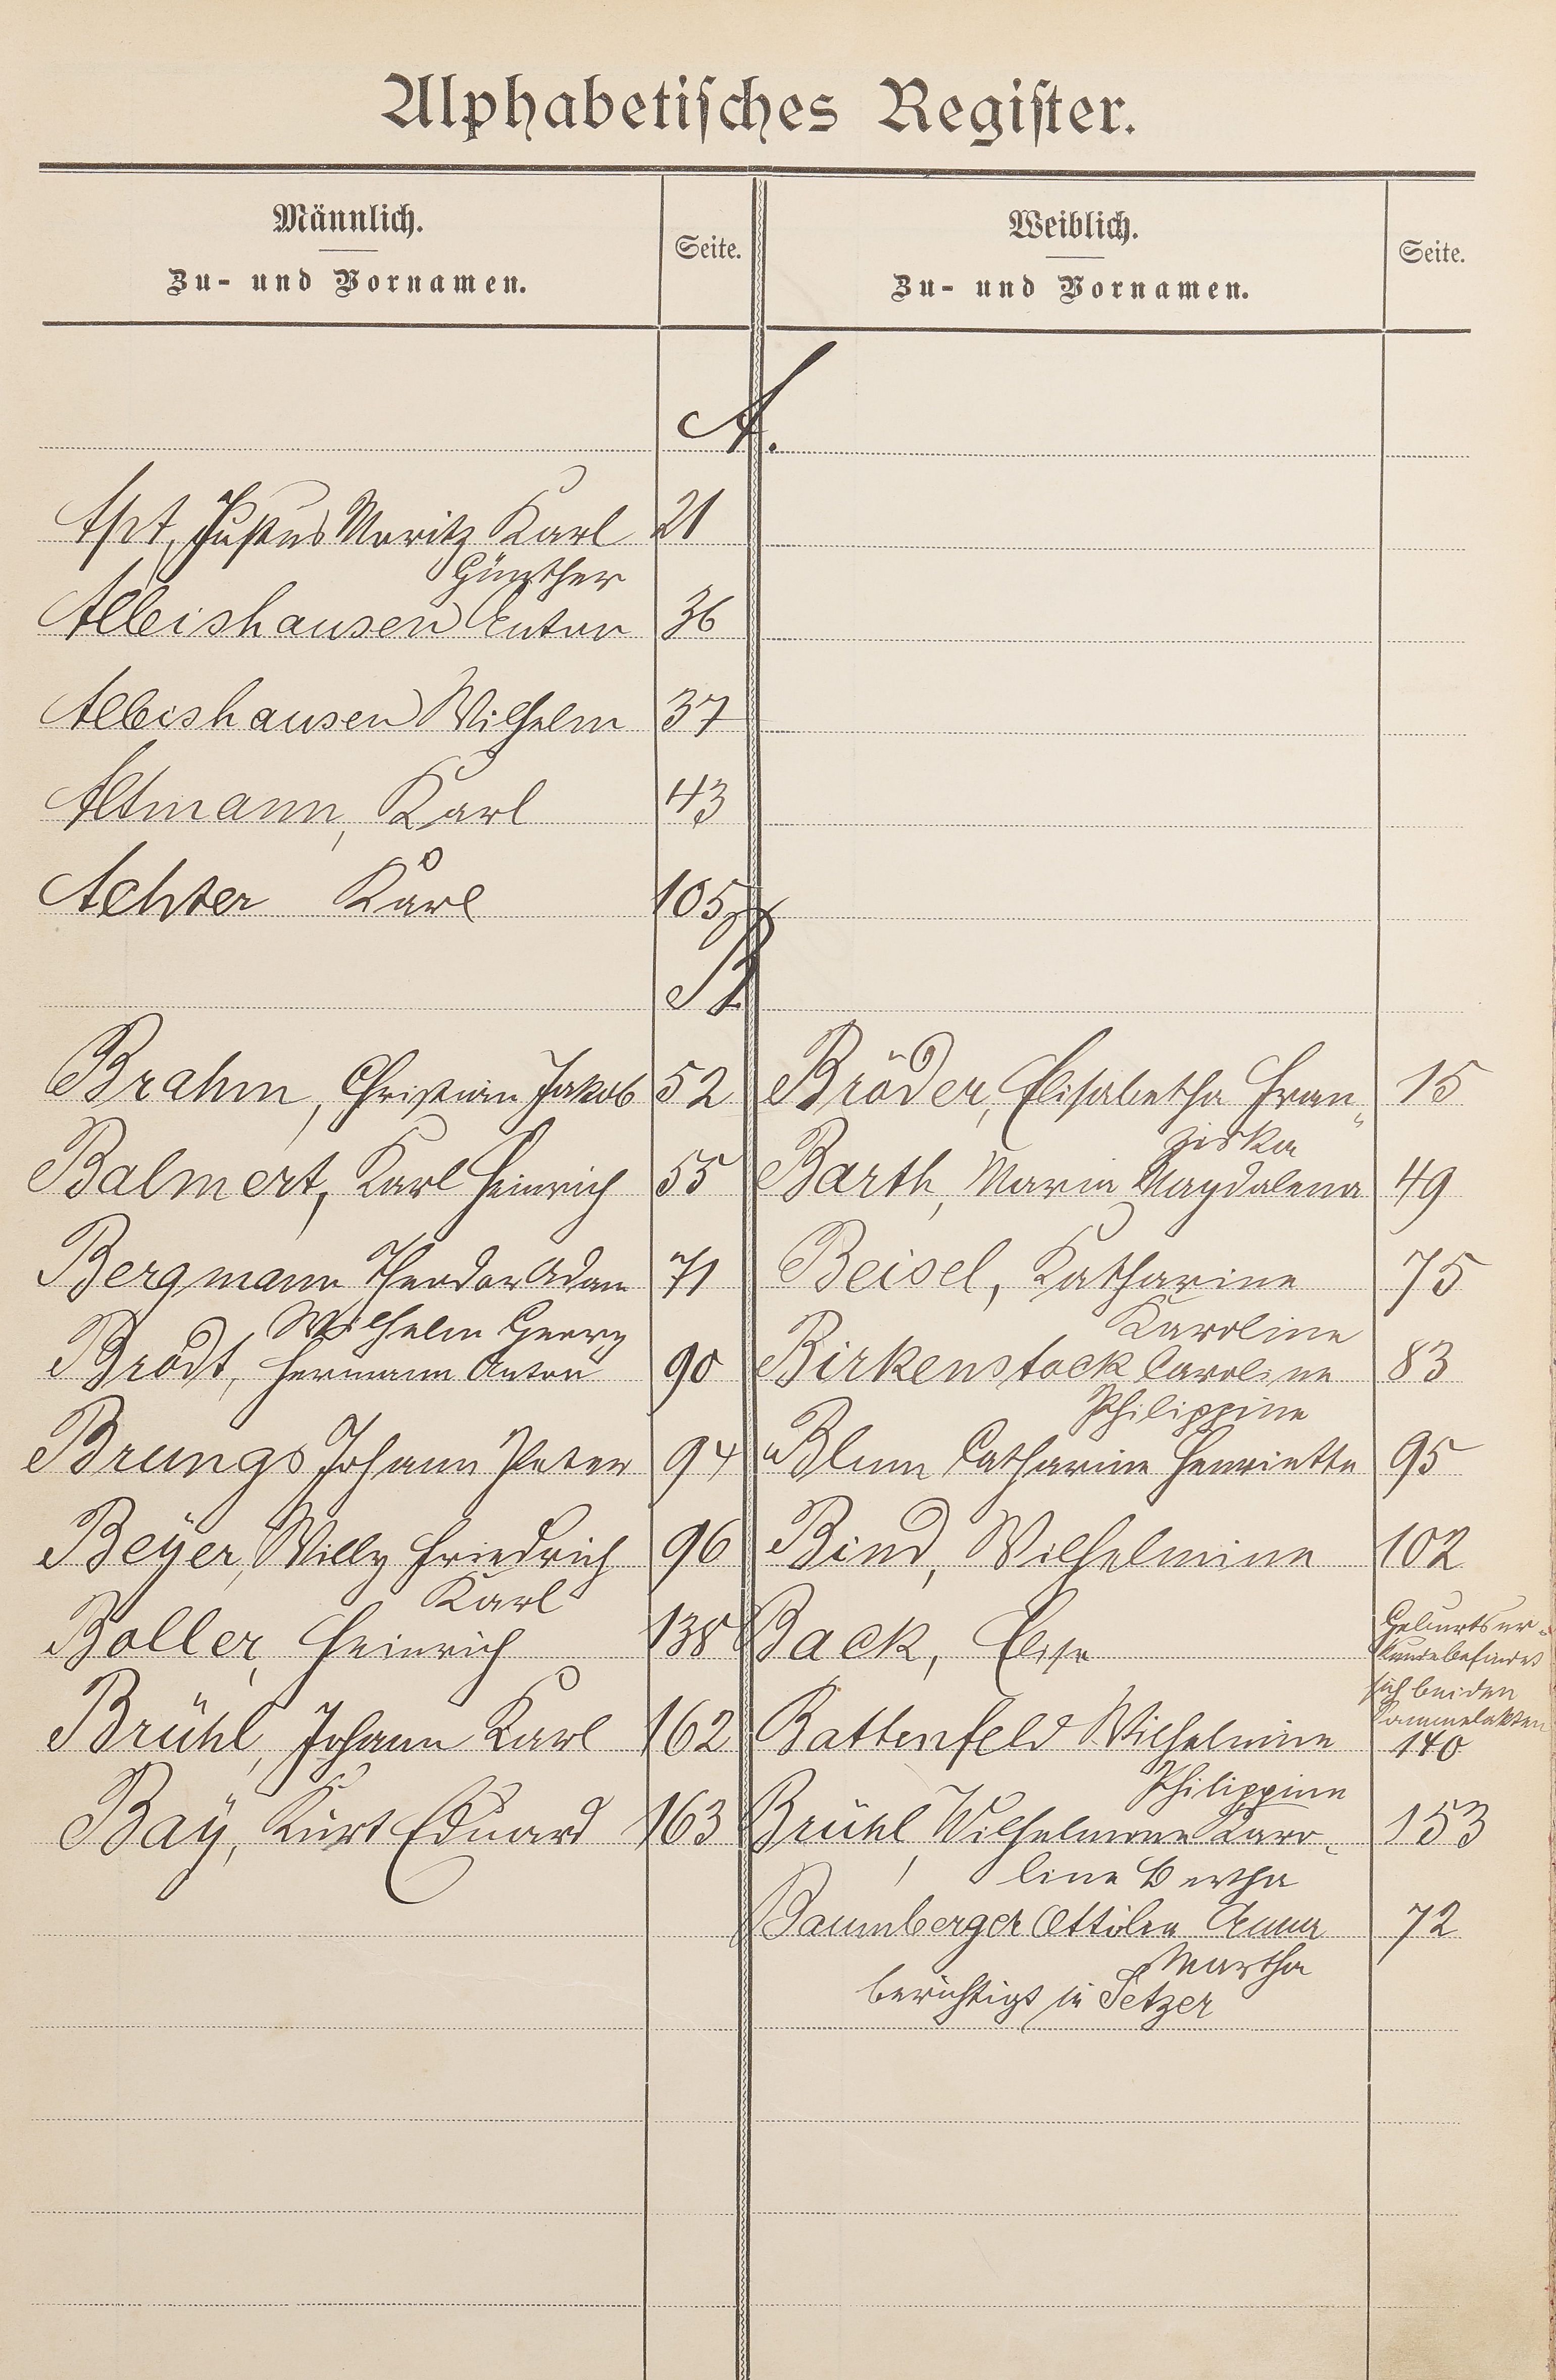 Alphabetisches Register.
Männlich.
Zu- und Vornamen.
Seite.
Weiblich.
Zu- und Vornamen.
Seite.
A.
Apt, Justus Moritz Karl 21
Günther
Albishausen Anton 36
Albishausen Wilhelm 37
Altmann, Karl 43
Achter Karl 105
B.
Brahm, Christian Jakob 52
Balmert, Karl Heinrich 55
Bergmann Theodor Adam 71
Wilhelm Georg
Brodt, Hermann Anton 90
Brungs Johann Peter 94
Beyer, Willy Friedrich 96
Karl
Boller, Heinrich 138
Brühl, Johann Karl 162
Bay, Kurt Eduard 163
Bröder, Elisabetha Fran„ 15
ziska
Barth, Maria Magdalena 49
Beisel, Katharine 75
Karoline
Birkenstock Caroline 83
Philippine
Blum Catharine Henriette 95
Bind, Wilhelmine 102
Back, Else
Geburtsur-
kunde befindet
sich bei den
Sammelakten
Battenfeld Wilhelmine 140
Philippine
Brühl, Wilhelmine Karo- 153
line Bertha
Baumberger Ottilie Anna 72
Martha
berichtigt in Setzer